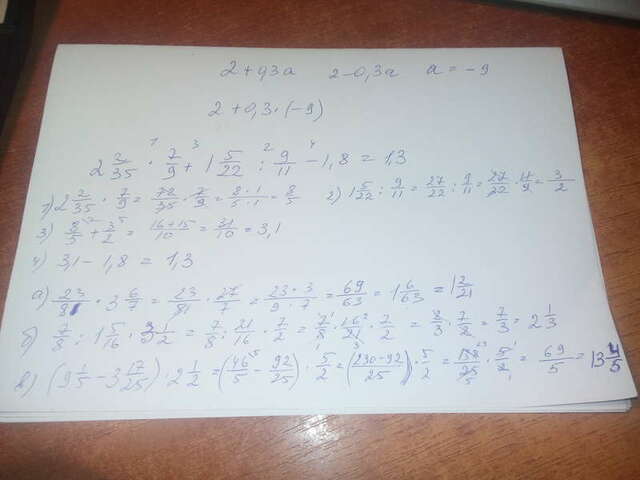 2+0,3a 2-0,3a a = -9
2+0,3·(-9)
2 2/35 · 7/9 + 1 5/22 : 9/11 - 1,8 = 1,3
1) 2 2/35 · 7/9 = 72/35 · 7/9 = 8·1/5·1 = 8/5 2) 1 5/22 : 9/11 = 27/22 : 9/11 = 27/22 · 11/9 = 3/2
3) 8/5 + 3/2 = 16+15/10 = 31/10 = 3,1
4) 3,1 - 1,8 = 1,3
а) 23/81 · 3 6/7 = 23/81 · 27/7 = 23·3/9·7 = 69/63 = 1 6/63 = 1 2/21
б) 7/8 : 1 5/16 · 3 1/2 = 7/8 : 21/16 · 7/2 = 7/8 · 16/21 · 7/2 = 2/3 · 7/2 = 7/3 = 2 1/3
в) (9 1/5 - 3 17/25) · 2 1/2 = (46/5 - 92/25) · 5/2 = (230-92/25) · 5/2 = 138/25 · 5/2 = 69/5 = 13 4/5